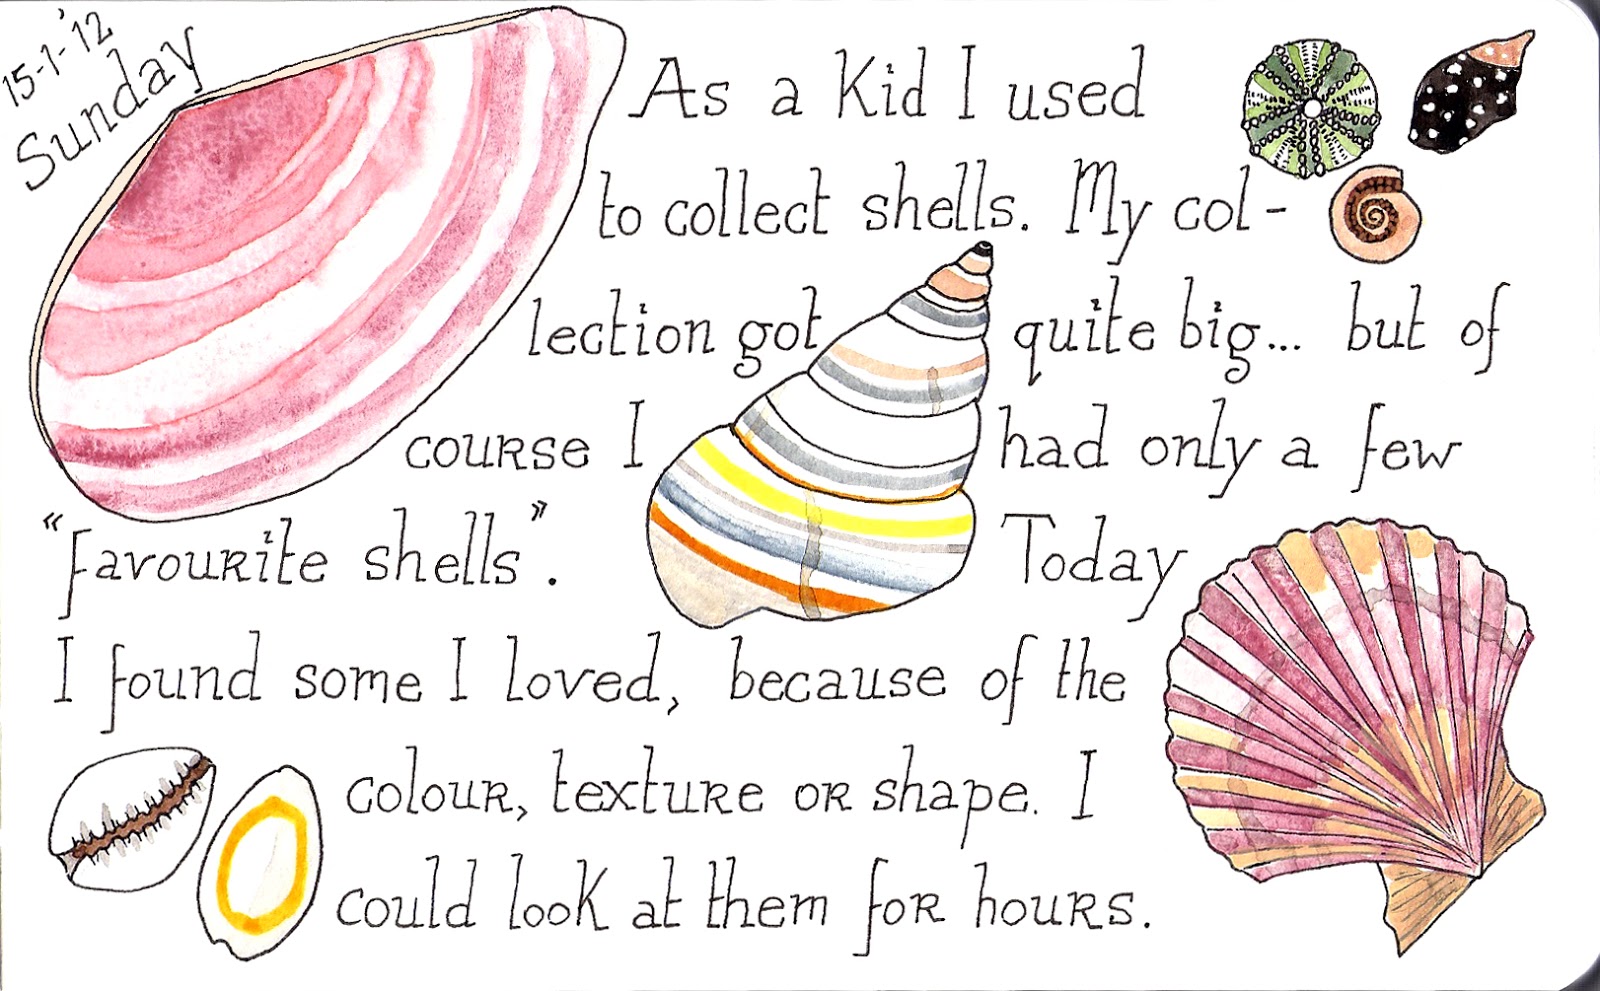 15-1-'12
Sunday
As a Kid I used
to collect shells. My col-
lection got quite big... but of
course I had only a few
"favourite shells". Today
I found some I loved, because of the
colour, texture or shape. I
could look at them for hours.